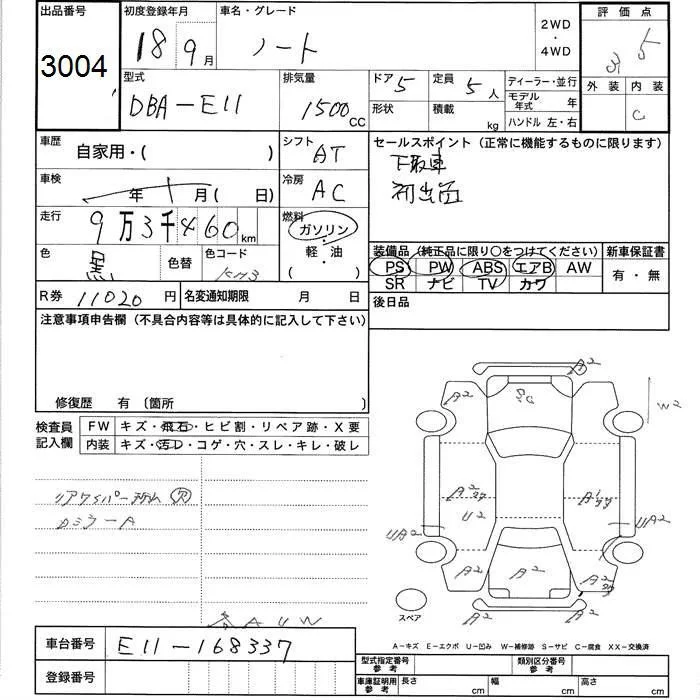 出品番号
3004
初度登録年月
18 9月
車名・グレード
ノート
2WD
・
4WD
評価点
3.5
外装 内装
C
型式
DBA-E11
排気量
1500cc
ドア 5
定員 5人
形状
積載 kg
ディーラー・並行
モデル年式 年
ハンドル 左・右
車歴
自家用・( )
シフト
AT
セールスポイント (正常に機能するものに限ります)
下取車
初出品
車検
年 月( 日)
冷房
AC
走行
9万3千460km
燃料
ガソリン・
軽・油
( )
色
黒
色替
色コード
KH3
装備品 (純正品に限り○をつけてください)
PS PW ABS エアB AW
SR ナビ TV カワ
新車保証書
有・無
R券 11020円
名変通知期限 月 日
後日品
注意事項申告欄 (不具合内容等は具体的に記入して下さい)
修復歴 有 〔箇所 〕
検査員
記入欄
FW キズ・飛石・ヒビ割・リペア跡・X要
内装 キズ・汚D・コゲ・穴・スレ・キレ・破レ
リアワイパーゴム 欠
Dミラー A
A U W
A2
A2
A2
W2
A2
U2
A1
UA2
UA2
A2
A2
A2
A2
A2
スペア
A-キズ E-エクボ U-凹み W-補修跡 S-サビ C-腐食 XX-交換済
車台番号
E11-168337
登録番号
型式指定番号
参考
類別区分番号
参考
車庫証明用
参考
長さ cm
幅 cm
高さ cm